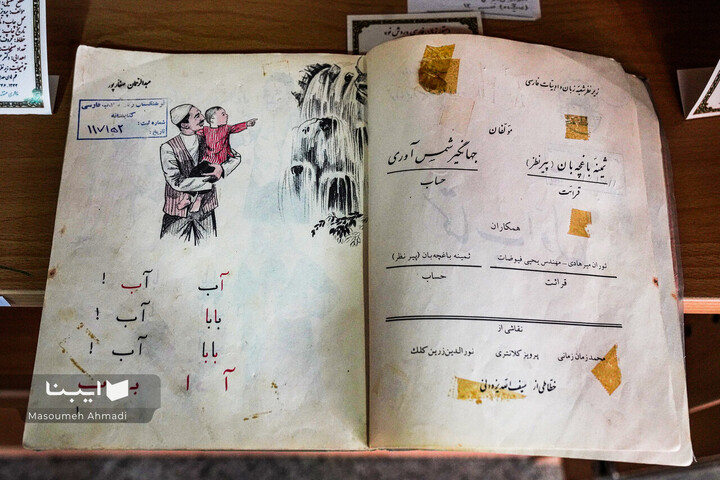 زیر نظر شعبهٔ زبان و ادبیات فارسی
مؤلفان
ثمینهٔ باغچه‌بان (پیرنظر)
جهانگیر شمس آوری
قرائت
حساب
همکاران
توران میرهادی - مهندس یحیی فیوضات
ثمینه باغچه‌بان (پیر نظر)
قرائت
حساب
نقاشی از
محمد زمان زمانی
پرویز کلانتری
نورالدین زرین کلک
خطاطی از سیف الله یزدانی
عبدالرحمان صفارپور
فرهنگستان زبان و ادب فارسی
کتابخانه
شماره ثبت:
۱۱۷۱۵۲
تاریخ:
آب آب !
بابا آب !
بابا آب !
آ ا ب
ایبنا
Masoumeh Ahmadi